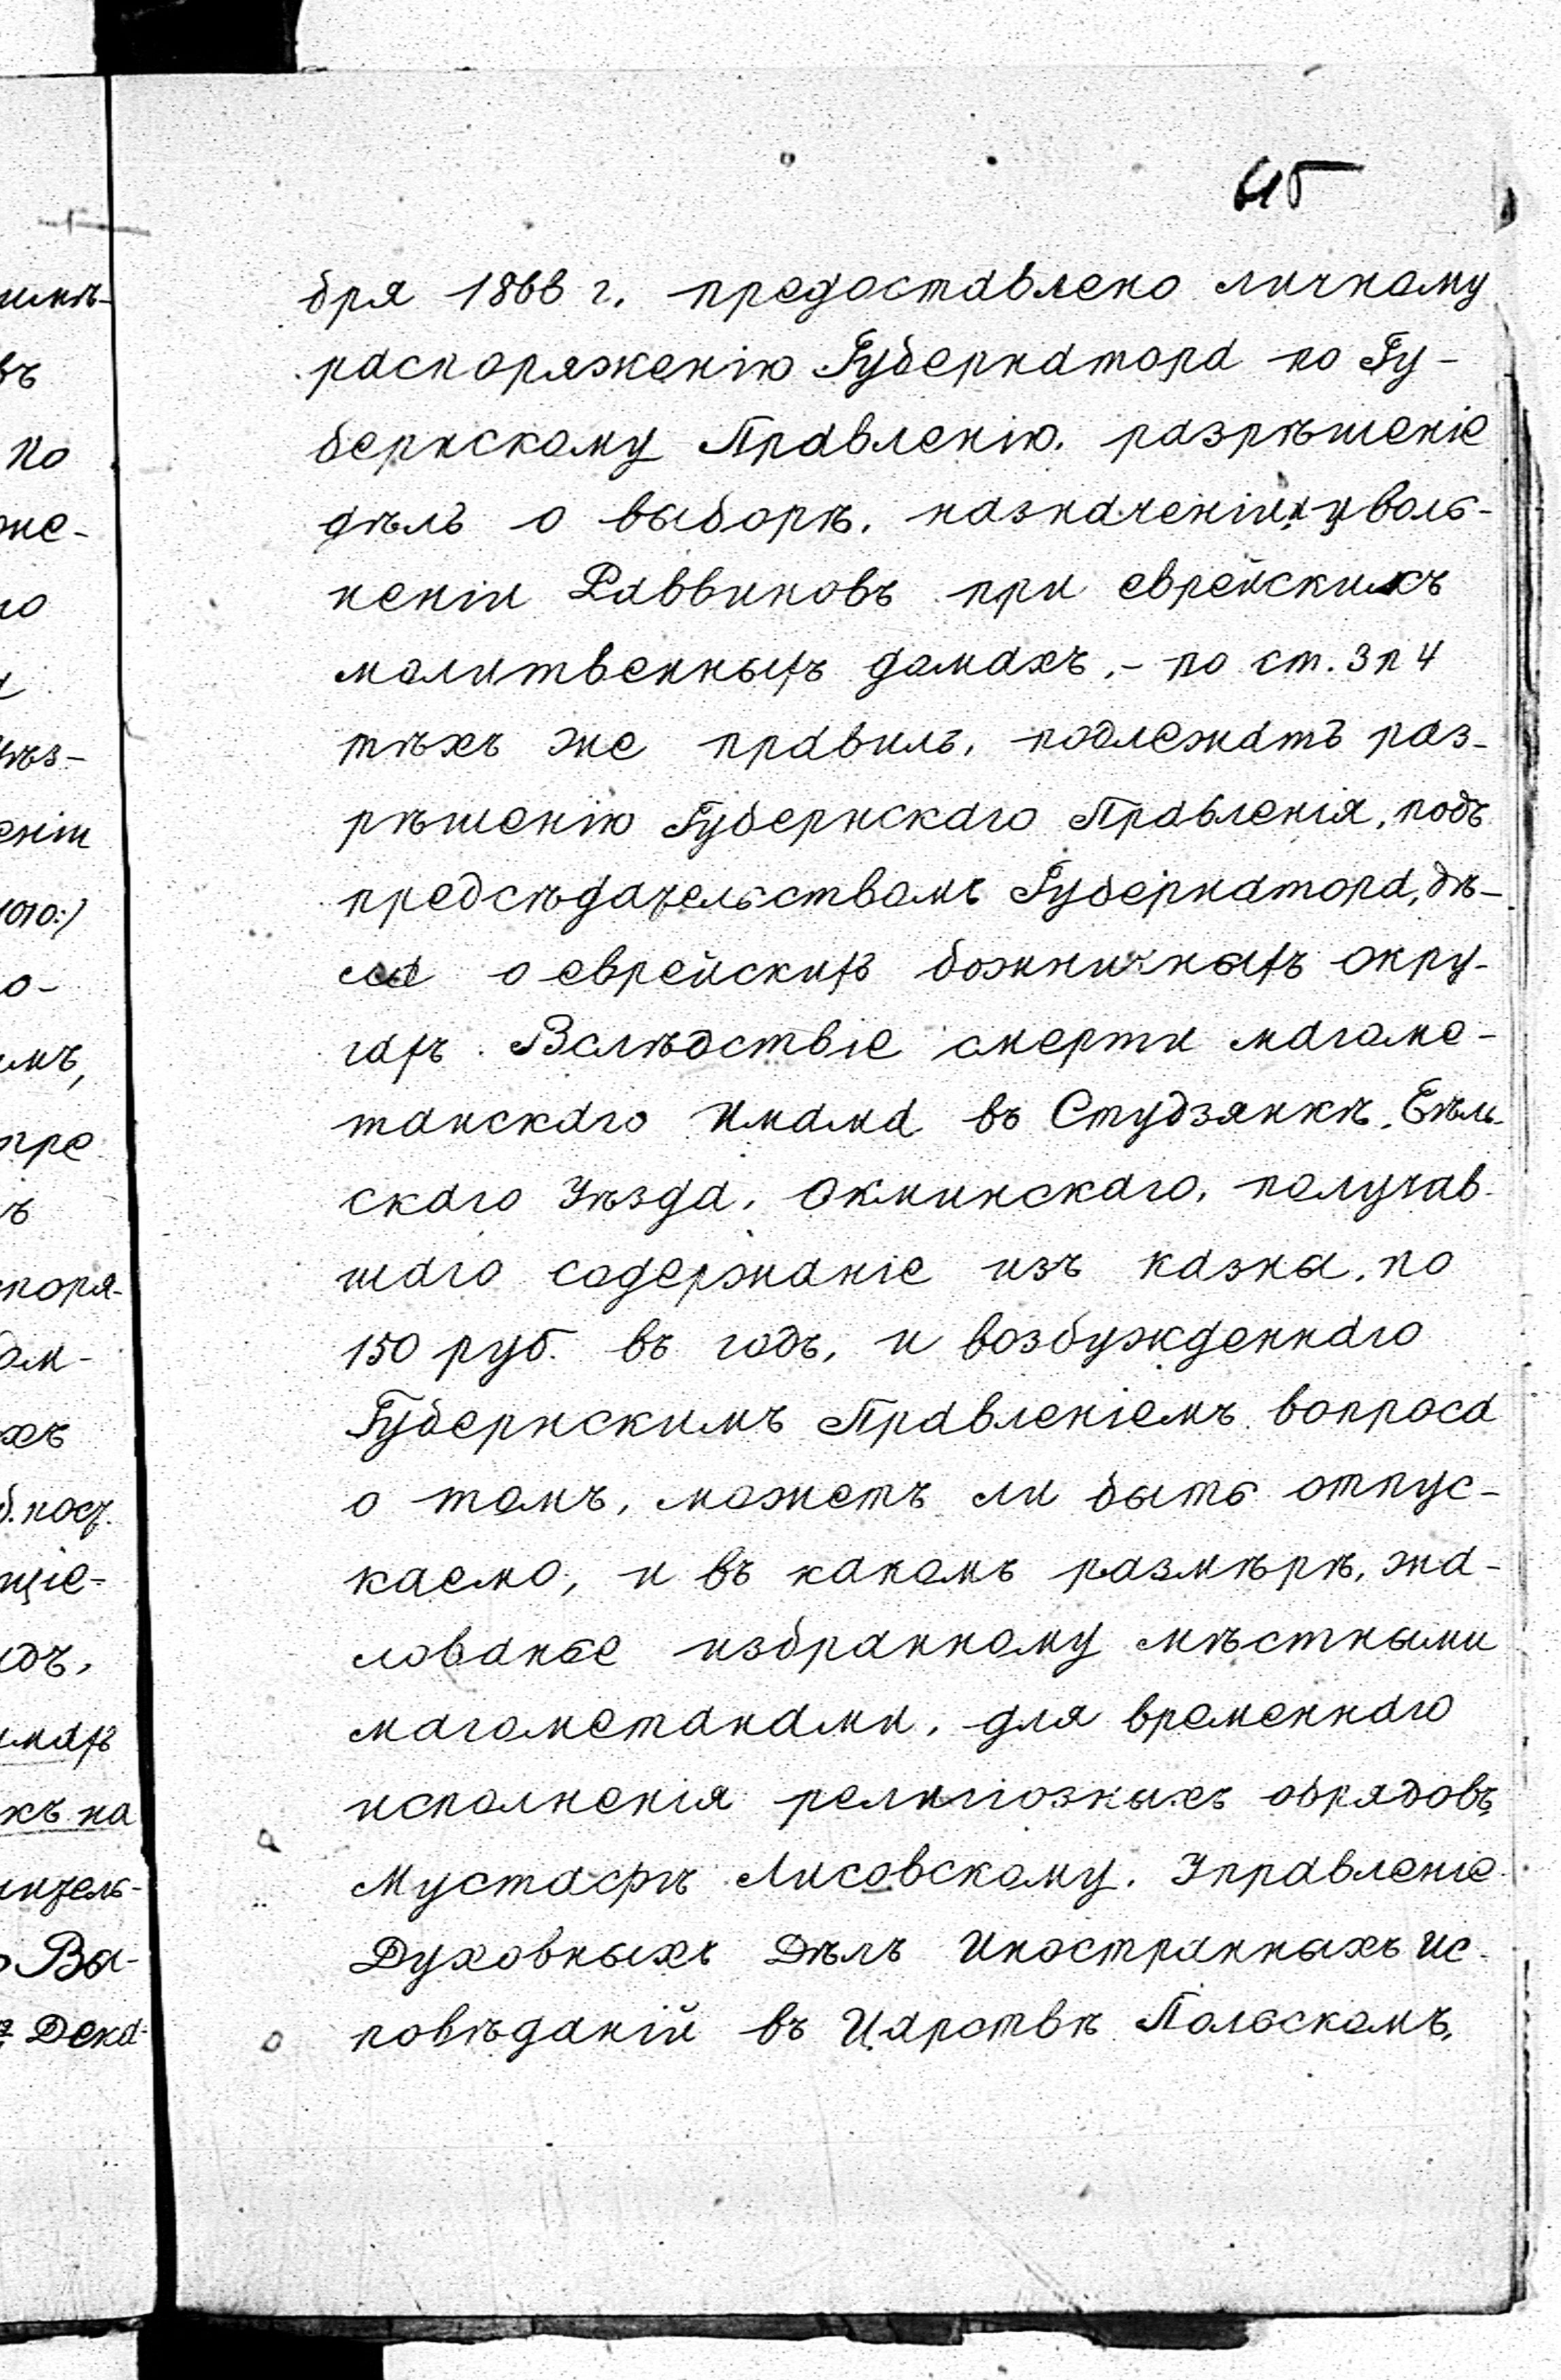 бря 1866 г. предоставлено личному
распоряженію Губернатора по Гу-
бернскому Правленію, разрѣшеніе
дѣлъ о выборѣ, назначеніи, и уволь-
неніи Раввиновъ при еврейскихъ
молитвенныхъ домахъ, - по ст. 3 п 4
тѣхъ же правилъ, подлежатъ раз-
рѣшенію Губернскаго Правленія, подъ
предсѣдательствомъ Губернатора, дѣ-
ла о еврейскихъ божничныхъ окру-
гахъ. Вслѣдствіе смерти магоме-
танскаго Имама въ Студзянкѣ, Бѣль-
скаго Уѣзда, Окминскаго, получав-
шаго содержаніе изъ казны, по
150 руб. въ годъ, и возбужденнаго
Губернскимъ Правленіемъ вопроса
о томъ, можетъ ли быть отпус-
каемо, и въ какомъ размѣрѣ, жа-
лованье избранному мѣстными
магометанами, для временнаго
исполненія религіозныхъ обрядовъ,
Мустафѣ Лисовскому, Управленіе
Духовныхъ Дѣлъ Иностранныхъ Ис-
повѣданій въ Царствѣ Польскомъ,